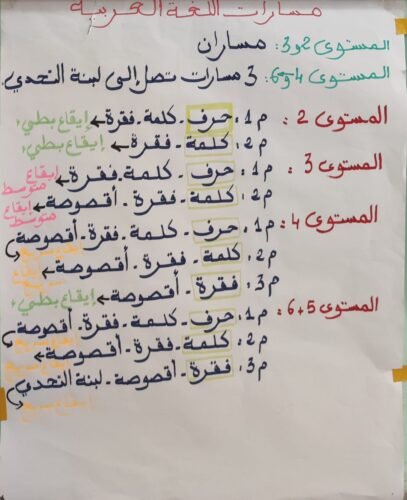 مسارات اللغة العربية
المستوى 2 و 3: مساران
المستوى 4 و 5 و 6: 3 مسارات تصل إلى لبنة التحدي.
المستوى 2: م1: حرف - كلمة - فقرة ← إيقاع بطيء
م2: كلمة - فقرة ← إيقاع بطيء
المستوى 3: م1: حرف - كلمة - فقرة ← إيقاع متوسط
م2: كلمة - فقرة - أقصوصة ← إيقاع متوسط
المستوى 4: م1: حرف - كلمة - فقرة - أقصوصة
إيقاع سريع
م2: كلمة - فقرة - أقصوصة ← إيقاع
م3: فقرة - أقصوصة ← إيقاع بطيء
المستوى 5+6: م1: حرف - كلمة - فقرة - أقصوصة
إيقاع سريع
م2: كلمة - فقرة - أقصوصة ← إيقاع سريع
م3: فقرة - أقصوصة - لبنة التحدي
إيقاع سريع